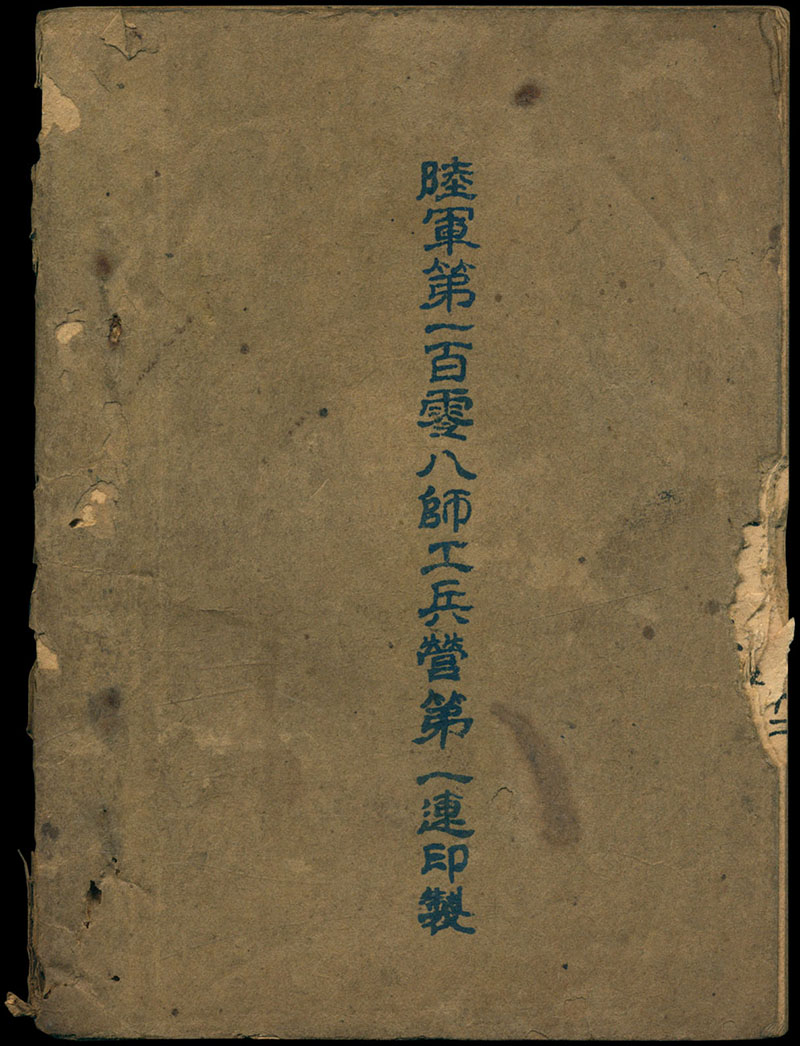 陸軍第一百零八師工兵營第一連印製